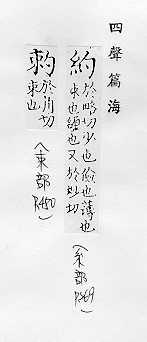 四聲篇海
約
於略切少也儉也薄也
束也纏也又於妙切
(糸部 P.869)
束也
(束部 P.480)